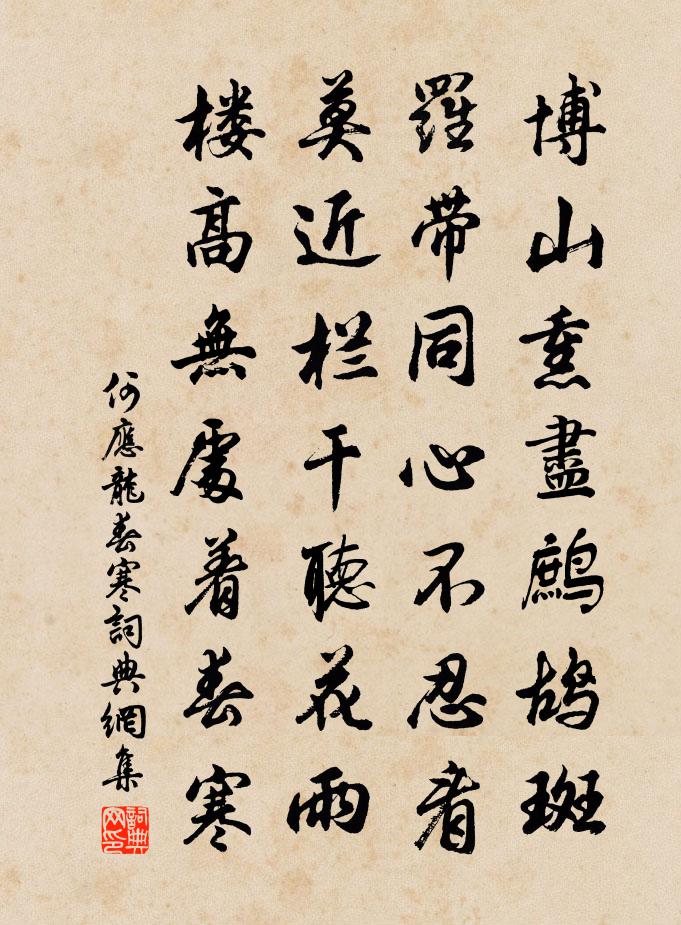 博山熏盡鷓鴣斑
羅帶同心不忍看
莫近栏干聽花雨
楼高無處着春寒
何應龍春寒詞典網集
詞典网印